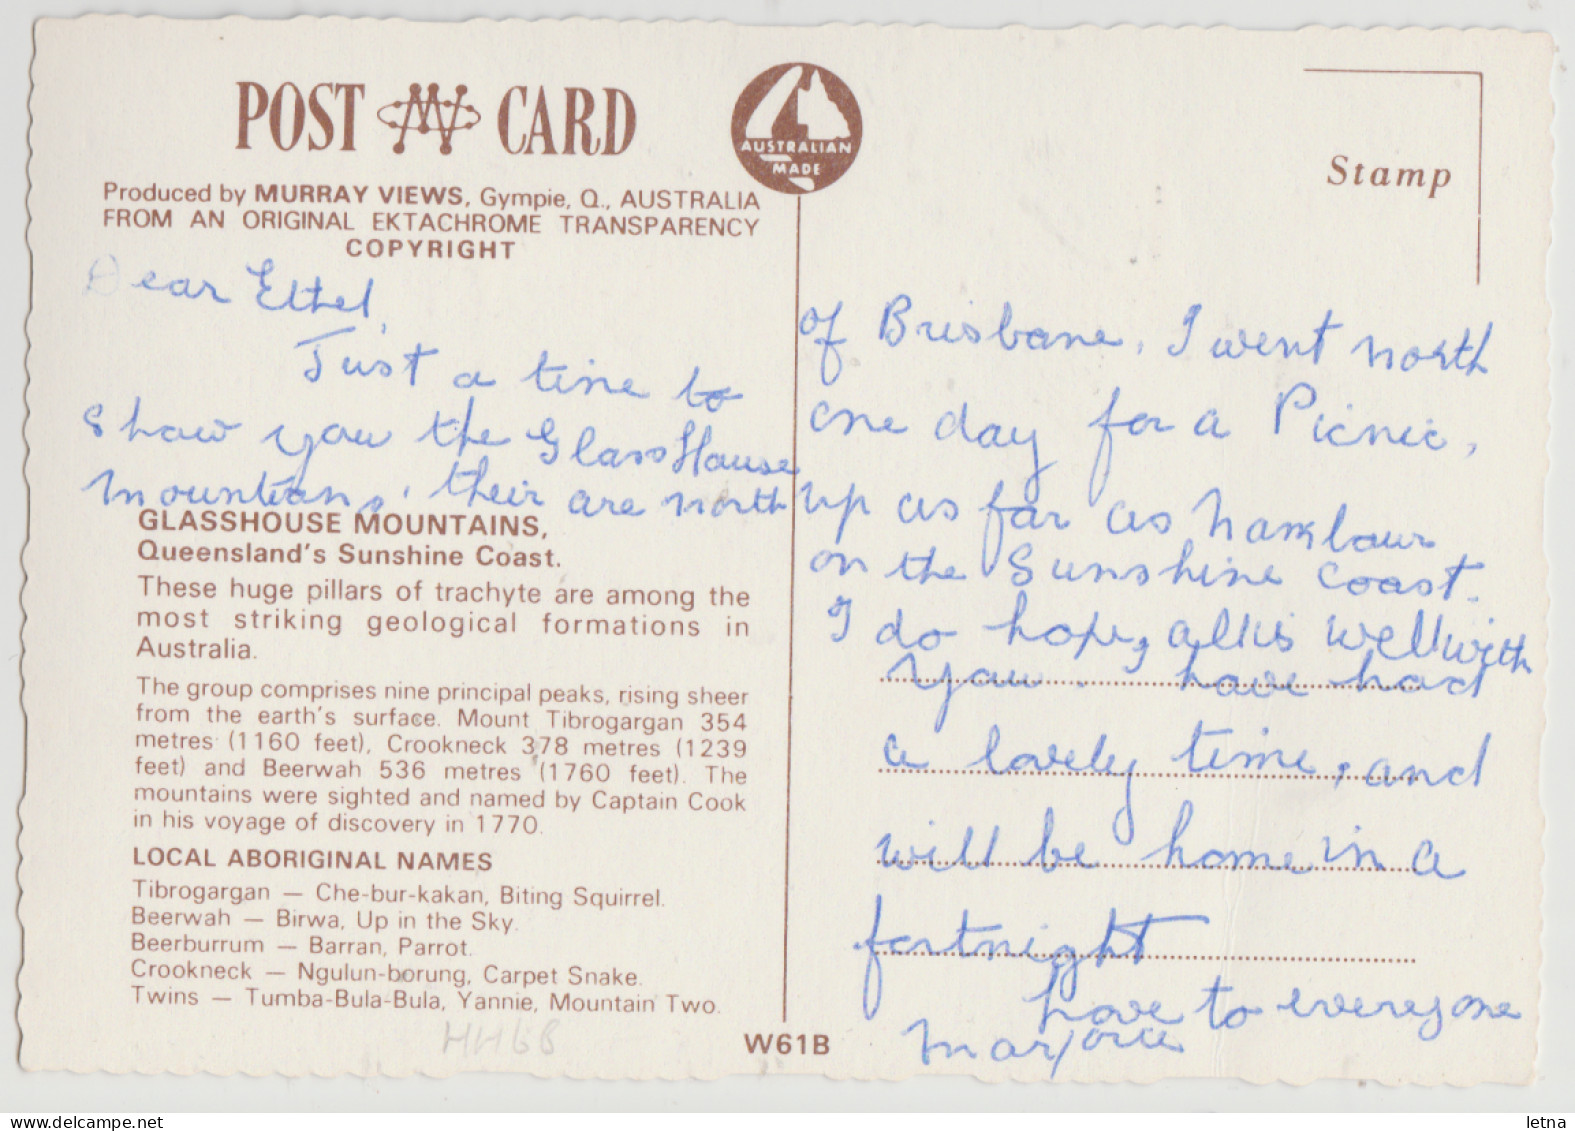 POST CARD
AUSTRALIAN
MADE
Stamp
Produced by MURRAY VIEWS, Gympie, Q., AUSTRALIA
FROM AN ORIGINAL EKTACHROME TRANSPARENCY
COPYRIGHT
Dear Ethel,
Just a line to
show you the Glass House
mountians, their are north
GLASSHOUSE MOUNTAINS,
Queensland's Sunshine Coast.
These huge pillars of trachyte are among the
most striking geological formations in
Australia.
The group comprises nine principal peaks, rising sheer
from the earth's surface. Mount Tibrogargan 354
metres (1160 feet), Crookneck 378 metres (1239
feet) and Beerwah 536 metres (1760 feet). The
mountains were sighted and named by Captain Cook
in his voyage of discovery in 1770.
LOCAL ABORIGINAL NAMES
Tibrogargan — Che-bur-kakan, Biting Squirrel.
Beerwah — Birwa, Up in the Sky.
Beerburrum — Barran, Parrot.
Crookneck — Ngulun-borung, Carpet Snake.
Twins — Tumba-Bula-Bula, Yannie, Mountain Two.
HH6B
W61B
of Brisbane, I went north
one day for a Picnic,
up as far as Nambour
on the Sunshine Coast.
I do hope, all is well with
you. have had
a lovely time, and
will be home in a
fortnight
love to everyone
Marjorie
letna